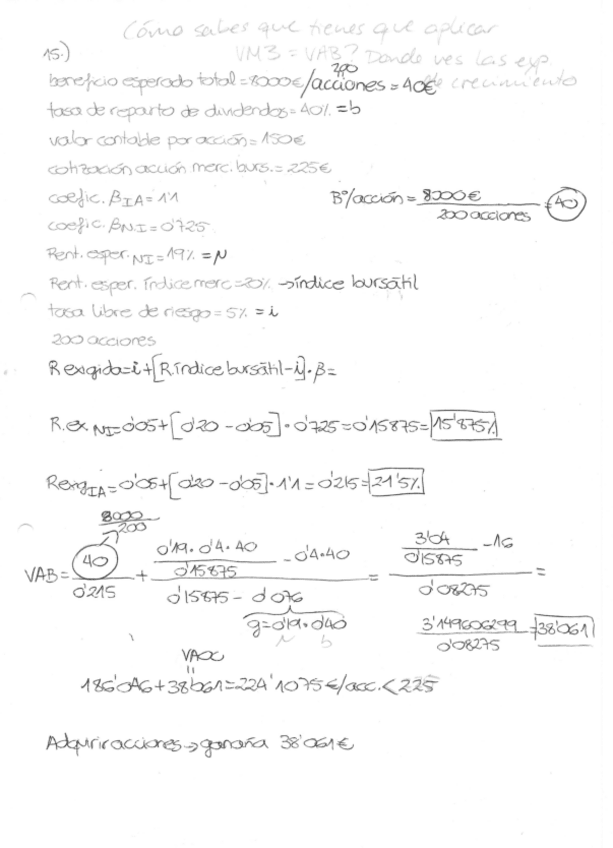 Cómo sabes que tienes que aplicar
VMB = VAB? Donde ves las exp.
de crecimiento
15.)
beneficio esperado total = 8000€/acciones = 40€
200
tasa de reparto de dividendos = 40% = b
valor contable por acción = 150€
cotización acción merc. burs. = 225€
coefic. β IA = 1'1
Bº/acción = 8000€ / 200 acciones = 40
coefic. β N.I = 0'725
Rent. esper. NI = 19% = r
Rent. esper. índice merc = 20% → índice bursátil
tasa libre de riesgo = 5% = i
200 acciones
R exigida = i + [R. índice bursátil - i] · β =
R. ex NI = 0'05 + [0'20 - 0'05] · 0'725 = 0'15875 = 15'875%
Rexig IA = 0'05 + [0'20 - 0'05] · 1'1 = 0'215 = 21'5%
8000/200
VAB = 40/0'215 + (0'19 · 0'4 · 40/0'15875 - 0'4 · 40)/(0'15875 - 0'076) = (3'04/0'15875 - 16)/0'08275 =
g = 0'19 · 0'40
3'149606299/0'08275 = 38'061
VAOC
186'046 + 38'061 = 224'1075 €/acc. < 225
Adquirir acciones → ganaría 38'061€